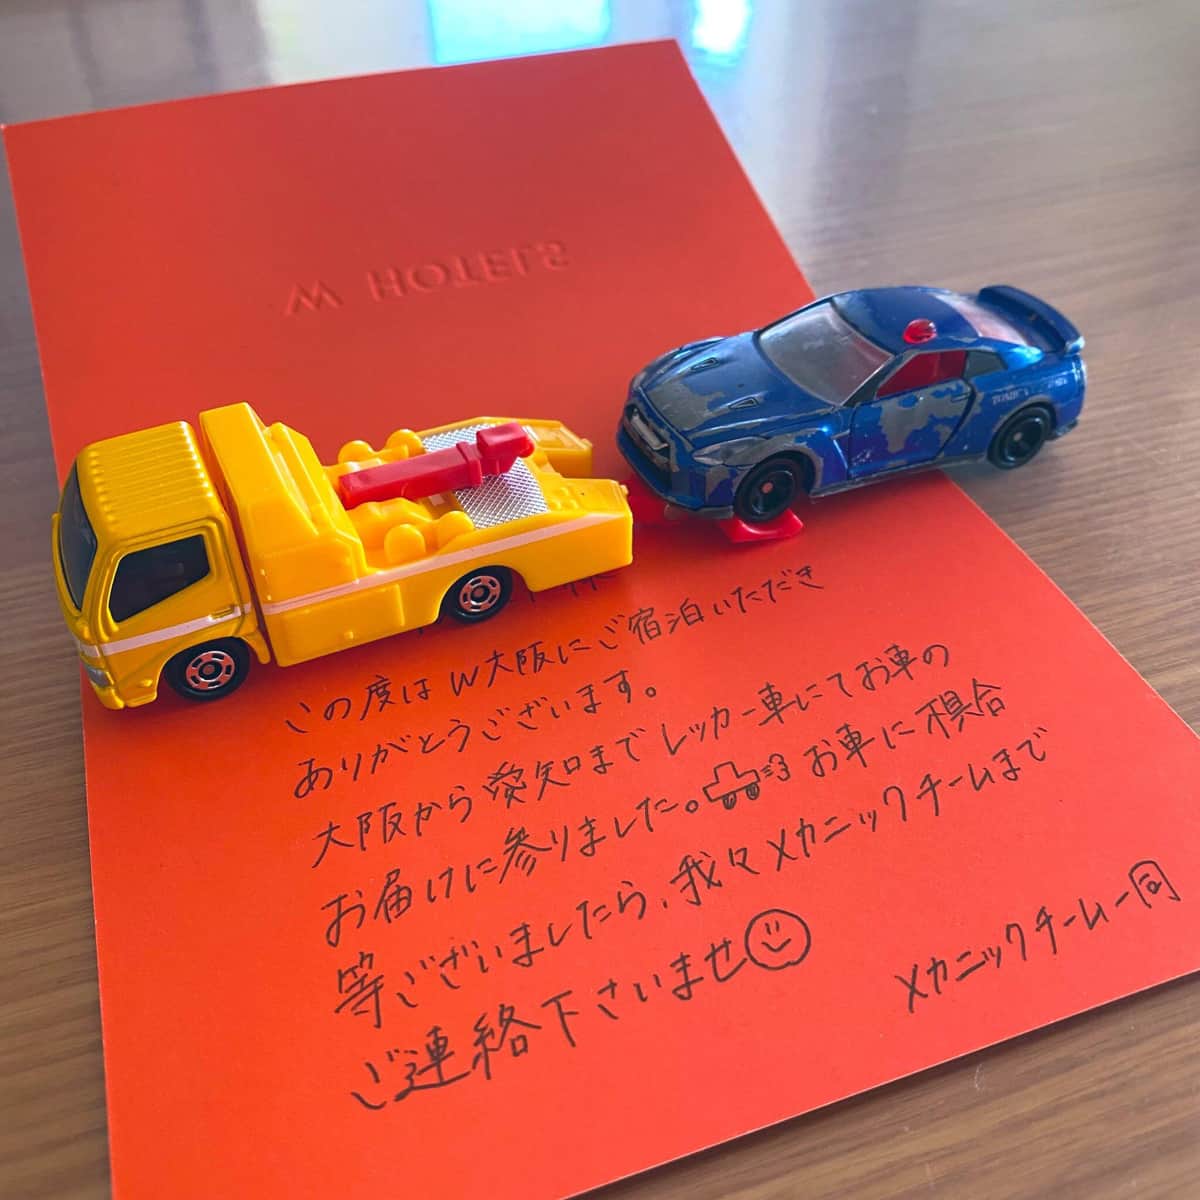 W HOTELS
TOMICA
様
この度は W大阪にご宿泊いただき
ありがとうございます。
大阪から愛知までレッカー車にてお車の
お届けに参りました。お車に不具合
等ございましたら、我々メカニックチームまで
ご連絡下さいませ
メカニックチーム一同